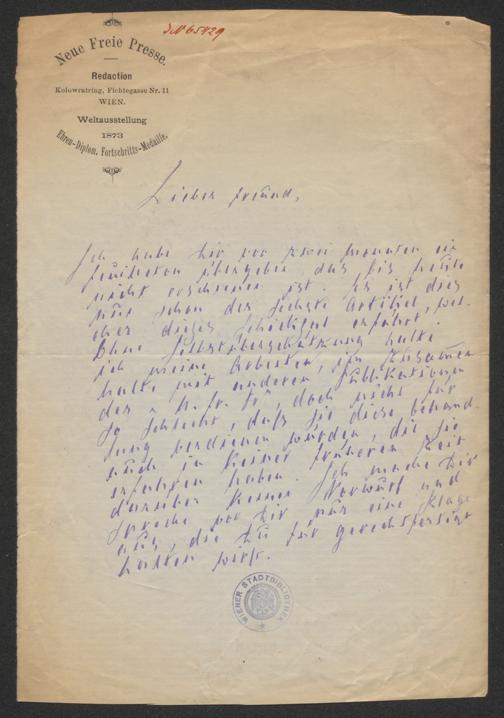 Neue Freie Presse.
Redaction
Kolowratring, Fichtegasse Nr. 11
WIEN.
Weltausstellung
1873
Ehren-Diplom. Fortschritts-Medaille.
Lieber Freund,
Ich habe dir vor zwei Monaten ein
Feuilleton übergeben das bis heute
nicht erschienen ist. Es ist dies
nun schon der sechste Artikel, wel-
cher dieses Schicksal erfährt.
Ohne Selbstüberschätzung halte
ich meine Arbeiten, im Zusammen
halte mit anderen Publikationen
der "N. fr. Pr", doch nicht für
so schlecht, daß sie diese behand-
lung verdienen würden, die sie
auch in keiner früheren Zeit
erfahren haben. Ich mache dir
darüber keinen Vorwurf und
spreche vor dir nur eine Klage
aus, die du für gerechtfertigt
halten wirst.
WIENER STADTBIBLIOTHEK